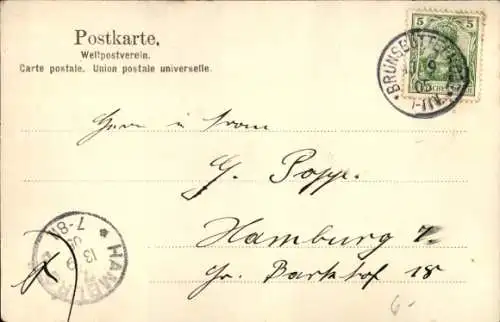 Postkarte.
Weltpostverein.
Carte postale. Union postale universelle.
5 5
BRUNSBÜTTELKOOG
9
Herrn u. Frau
G. Popp.
Hamburg 7.
Gr. Barkhof 18
* HAMBURG
13 9
7-8
6.